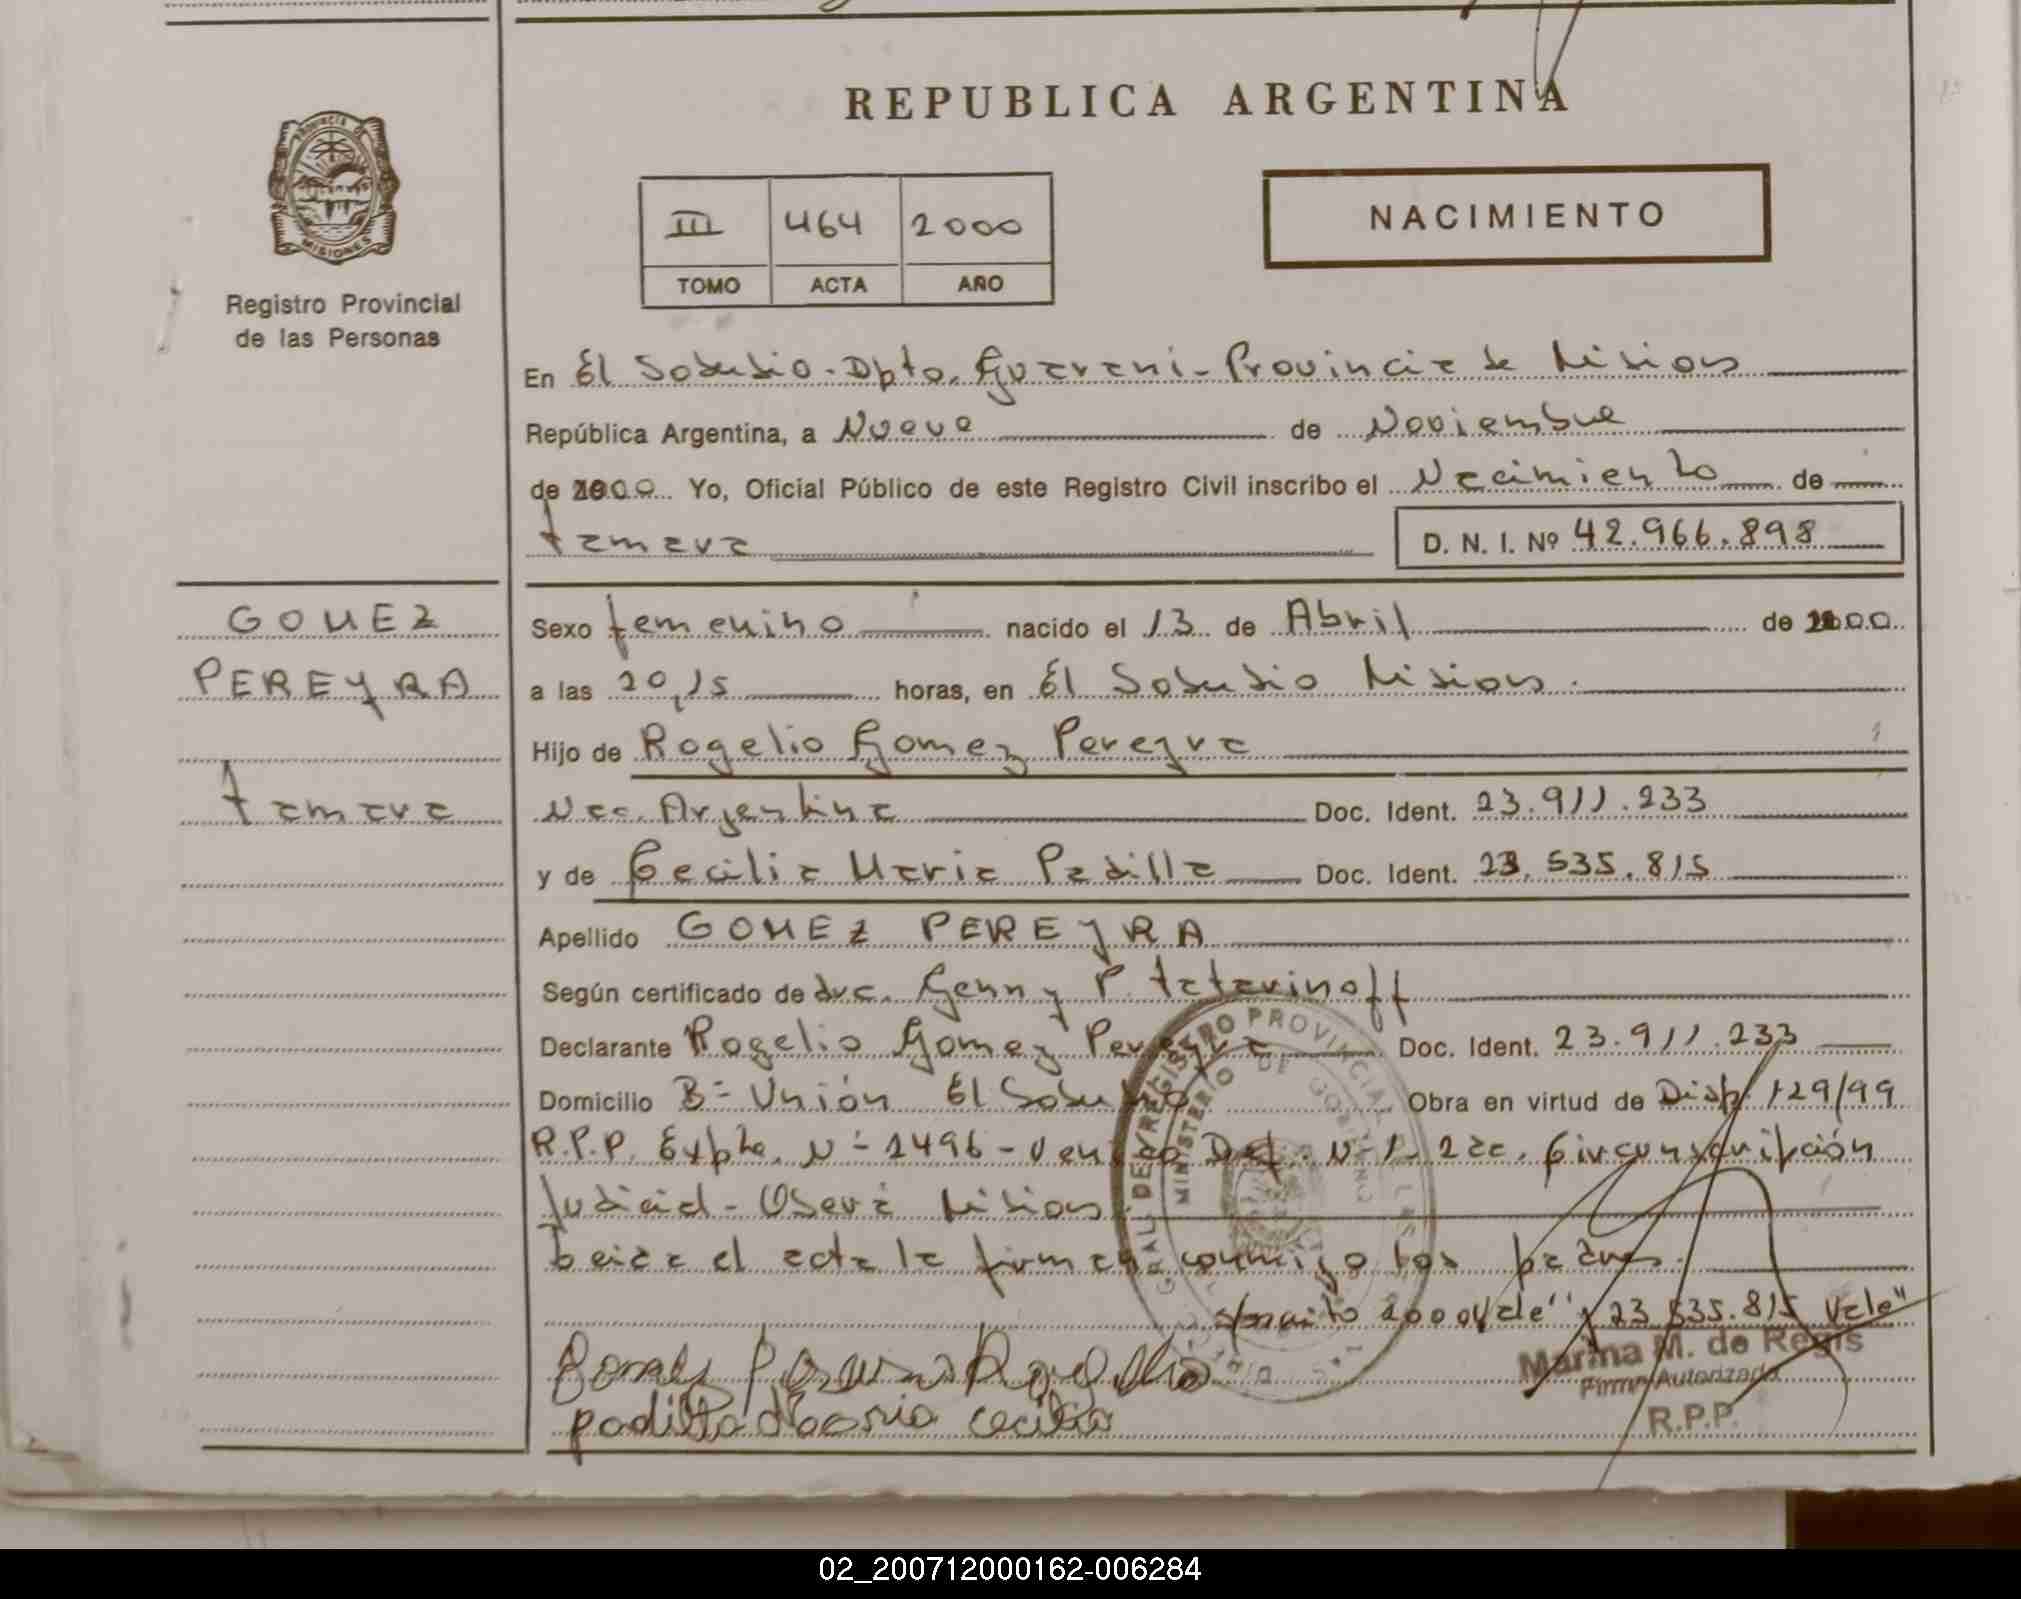 REPUBLICA ARGENTINA
PROVINCIA DE
MISIONES
Registro Provincial
de las Personas
III 464 2000
TOMO ACTA AÑO
NACIMIENTO
En El Soberbio - Dpto. Guarani - Provincia de Misiones
República Argentina, a Nueve de Noviembre
de 2000 Yo, Oficial Público de este Registro Civil inscribo el Nacimiento de
tamara
D. N. I. Nº 42.966.898
GOMEZ
PEREYRA
tamara
Sexo femenino nacido el 13 de Abril de 2000
a las 20,15 horas, en El Soberbio Misiones.
Hijo de Rogelio Gomez Pereyra
Nac. Argentina Doc. Ident. 23.911.233
y de Cecilia Maria Padilla Doc. Ident. 23.535.815
Apellido GOMEZ PEREYRA
Según certificado de dra. Genny P. tatarinoff
Declarante Rogelio Gomez Pereyra Doc. Ident. 23.911.233
Domicilio Bº Unión El Soberbio Obra en virtud de Disp. 129/99
R.P.P. Expte. Nº 1496 - Def. Nº 1 - 2da. Circunscripción
Judicial - Oberá Misiones.
Leida el acta la firman conmigo los padres.
s/raito 2000 Vale" y 23.535.815 Vale"
Gomez Rogelio
padilla Maria cecilia
REGISTRO PROVINCIAL DE LAS
MINISTERIO DE GOBIERNO
Marina M. de Regis
Firma Autorizada
R.P.P.
02_200712000162-006284